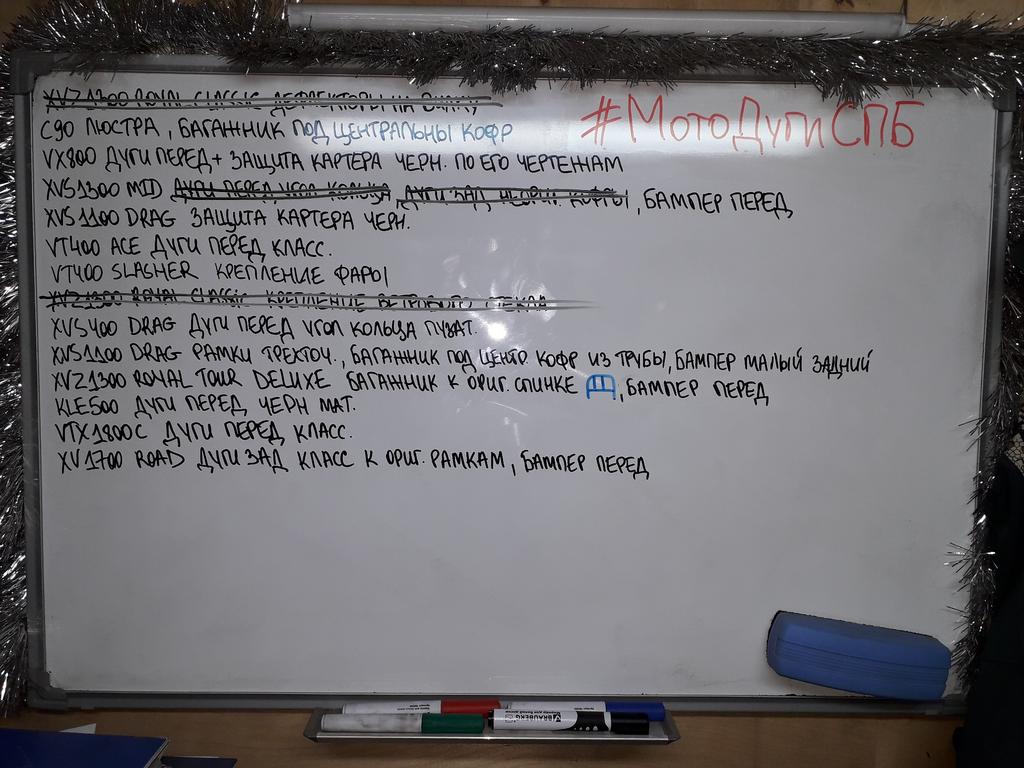 XVZ1300 ROYAL CLASSIC ДЕФЛЕКТОРЫ НА
#МотоДугиСПБ
C90 ЛЮСТРА, БАГАЖНИК ПОД ЦЕНТРАЛЬНЫ КОФР
VX800 ДУГИ ПЕРЕД + ЗАЩИТА КАРТЕРА ЧЕРН. ПО ЕГО ЧЕРТЕЖАМ
XVS1300 MID ДУГИ ПЕРЕД УГОЛ КОЛЬЦА, ДУГИ ЗАД КОФРЫ, БАМПЕР ПЕРЕД
XVS1100 DRAG ЗАЩИТА КАРТЕРА ЧЕРН.
VT400 ACE ДУГИ ПЕРЕД КЛАСС.
VT400 SLASHER КРЕПЛЕНИЕ ФАРЫ
XVZ1300 ROYAL CLASSIC КРЕПЛЕНИЕ ВЕТРОВОГО СТЕКЛА
XVS400 DRAG ДУГИ ПЕРЕД УГОЛ КОЛЬЦА ПУЗАТ.
XVS1100 DRAG РАМКИ ТРЕХТОЧ., БАГАЖНИК ПОД ЦЕНТР КОФР ИЗ ТРУБЫ, БАМПЕР МАЛЫЙ ЗАДНИЙ
XVZ1300 ROYAL TOUR DELUXE БАГАЖНИК К ОРИГ. СПИНКЕ, БАМПЕР ПЕРЕД
KLE500 ДУГИ ПЕРЕД ЧЕРН МАТ.
VTX1800C ДУГИ ПЕРЕД КЛАСС.
XV1700 ROAD ДУГИ ЗАД КЛАСС К ОРИГ. РАМКАМ, БАМПЕР ПЕРЕД
BRAUBERG